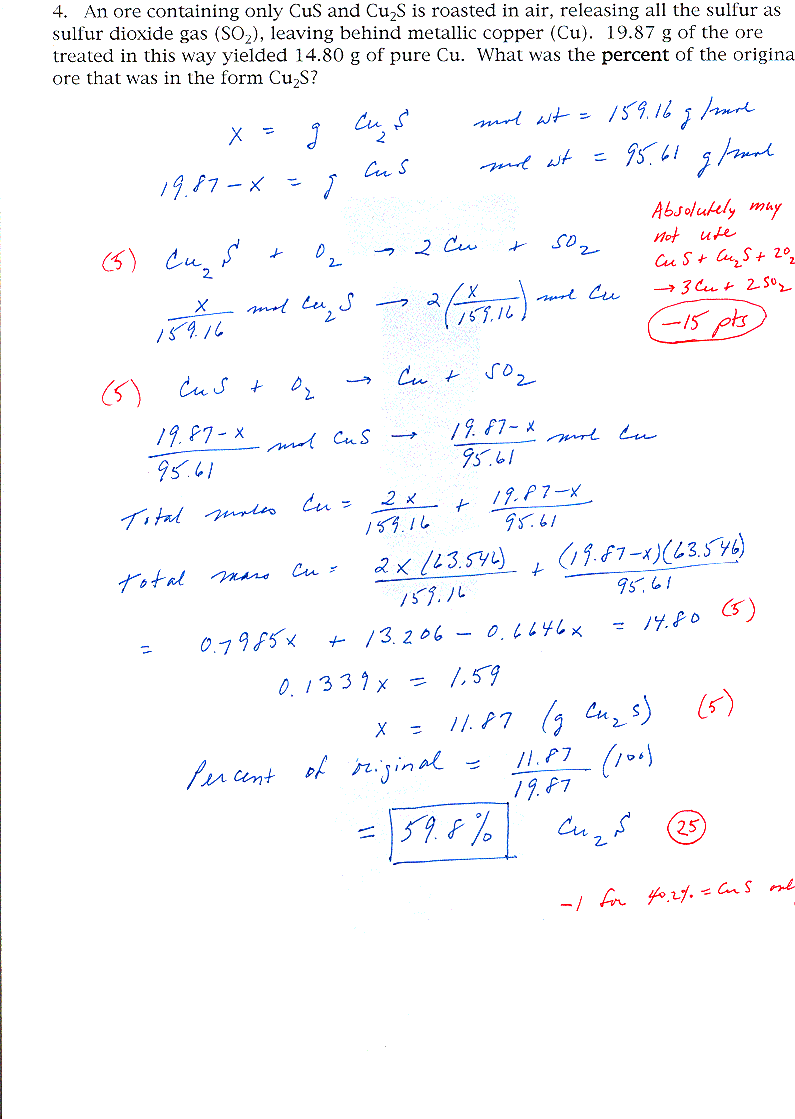 4. An ore containing only CuS and Cu₂S is roasted in air, releasing all the sulfur as
sulfur dioxide gas (SO₂), leaving behind metallic copper (Cu). 19.87 g of the ore
treated in this way yielded 14.80 g of pure Cu. What was the percent of the origina
ore that was in the form Cu₂S?
x = g Cu₂S mol wt = 159.16 g/mol
19.87 - x = g CuS mol wt = 95.61 g/mol
Absolutely may
not use
CuS + Cu₂S + 2O₂
→ 3Cu + 2SO₂
-15 pts
(5) Cu₂S + O₂ → 2 Cu + SO₂
x/159.16 mol Cu₂S → 2(x/159.16) mol Cu
(5) CuS + O₂ → Cu + SO₂
19.87-x/95.61 mol CuS → 19.87-x/95.61 mol Cu
Total moles Cu = 2x/159.16 + 19.87-x/95.61
Total mass Cu = 2x(63.546)/159.16 + (19.87-x)(63.546)/95.61
= 0.7985x + 13.206 - 0.6646x = 14.80 (5)
0.1339x = 1.59
x = 11.87 (g Cu₂S) (5)
Percent of original = 11.87/19.87 (100)
= 59.8% Cu₂S 25
-1 for 40.2% = CuS onl